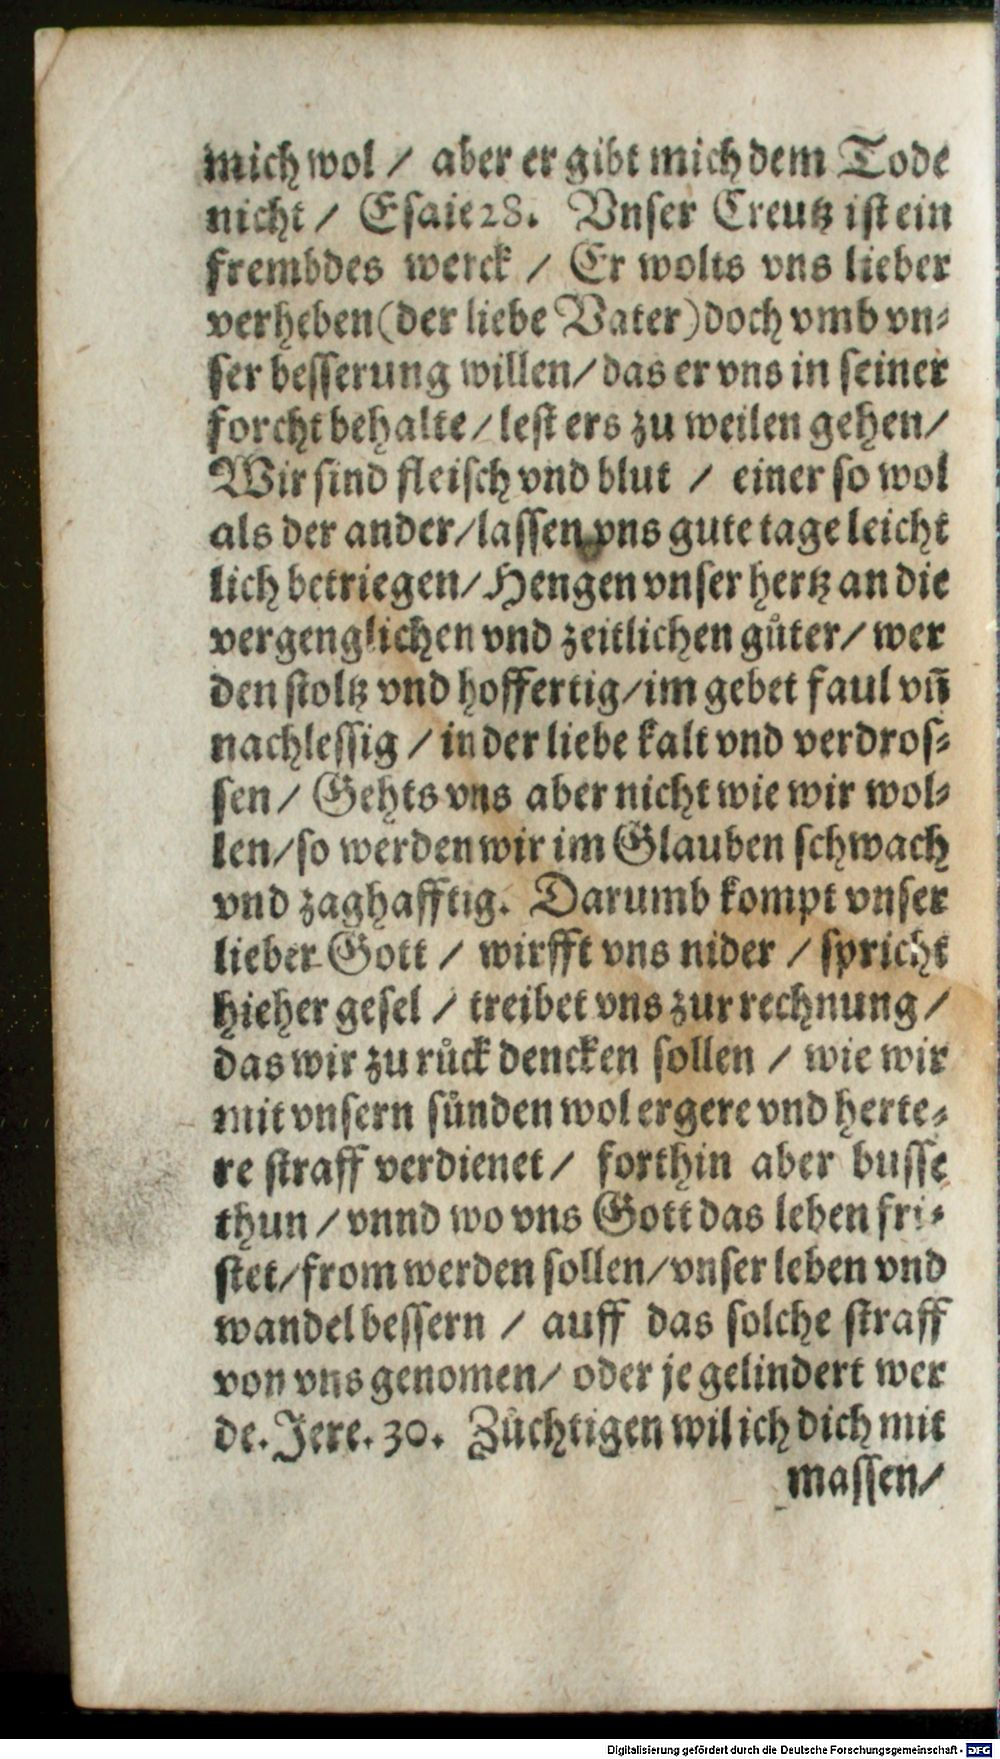 mich wol / aber er gibt mich dem Tode
nicht / Esaie 28. Vnser Creutz ist ein
frembdes werck / Er wolts vns lieber
verheben (der liebe Vater) doch vmb vn⸗
ser besserung willen / das er vns in seiner
forcht behalte / lest ers zu weilen gehen /
Wir sind fleisch vnd blut / einer so wol
als der ander / lassen vns gute tage leicht
lich betriegen / Hengen vnser hertz an die
vergenglichen vnd zeitlichen guͤter / wer
den stoltz vnd hoffertig / im gebet faul vn̄
nachlessig / in der liebe kalt vnd verdros⸗
sen / Gehts vns aber nicht wie wir wol⸗
len / so werden wir im Glauben schwach
vnd zaghafftig. Darumb kompt vnser
lieber Gott / wirfft vns nider / spricht
hieher gesel / treibet vns zur rechnung /
das wir zu ruͤck dencken sollen / wie wir
mit vnsern suͤnden wol ergere vnd herte⸗
re straff verdienet / forthin aber busse
thun / vnnd wo vns Gott das leben fri⸗
stet / from werden sollen / vnser leben vnd
wandel bessern / auff das solche straff
von vns genomen / oder je gelindert wer
de. Jere. 30. Zuͤchtigen wil ich dich mit
massen /
Digitalisierung gefördert durch die Deutsche Forschungsgemeinschaft - DFG